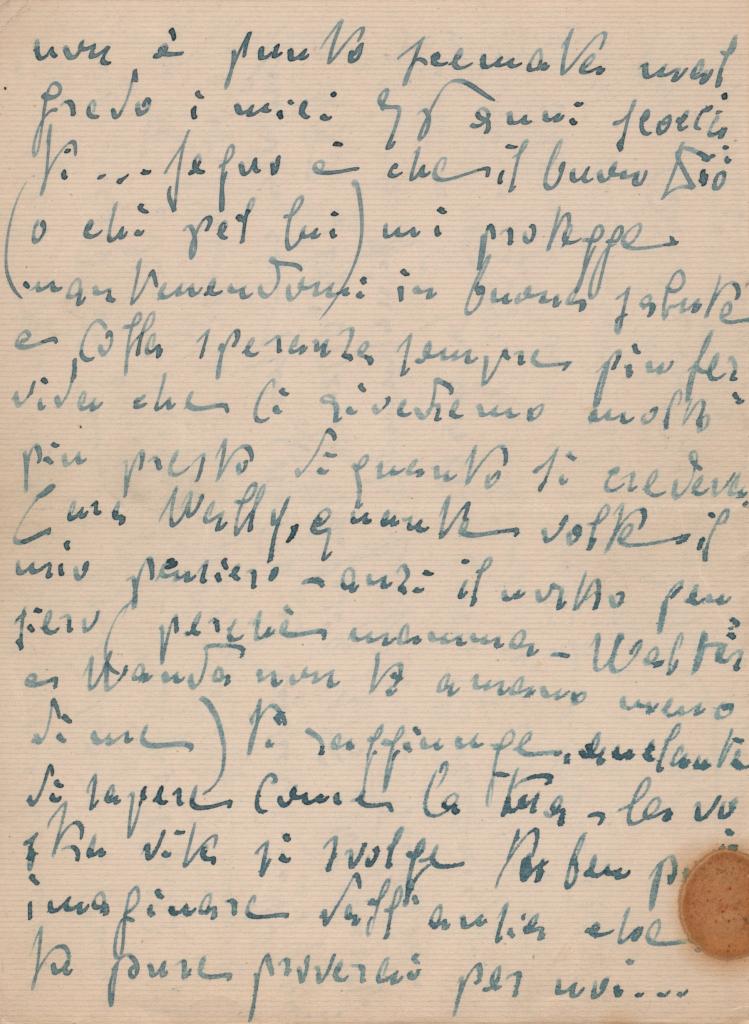 non è punto scemata mal
grado i miei 78 anni scocca
ti ... Segno è che il buon Dio
(o chi per lui) mi protegge
mantenendomi in buona salute
e colla speranza sempre più fer
vida che ci rivedremo molto
più presto di quanto si credeva.
Cara Wally, quante volte il
mio pensiero - anzi il nostro pen
siero (perchè mamma - Walter
e Wanda non ti amano meno
di me) ti raggiunge, anelante
di sapere come la tua - la vo
stra vita si svolge. Tu ben puoi
imaginare dall'ansia che
tu pure proverai per noi...